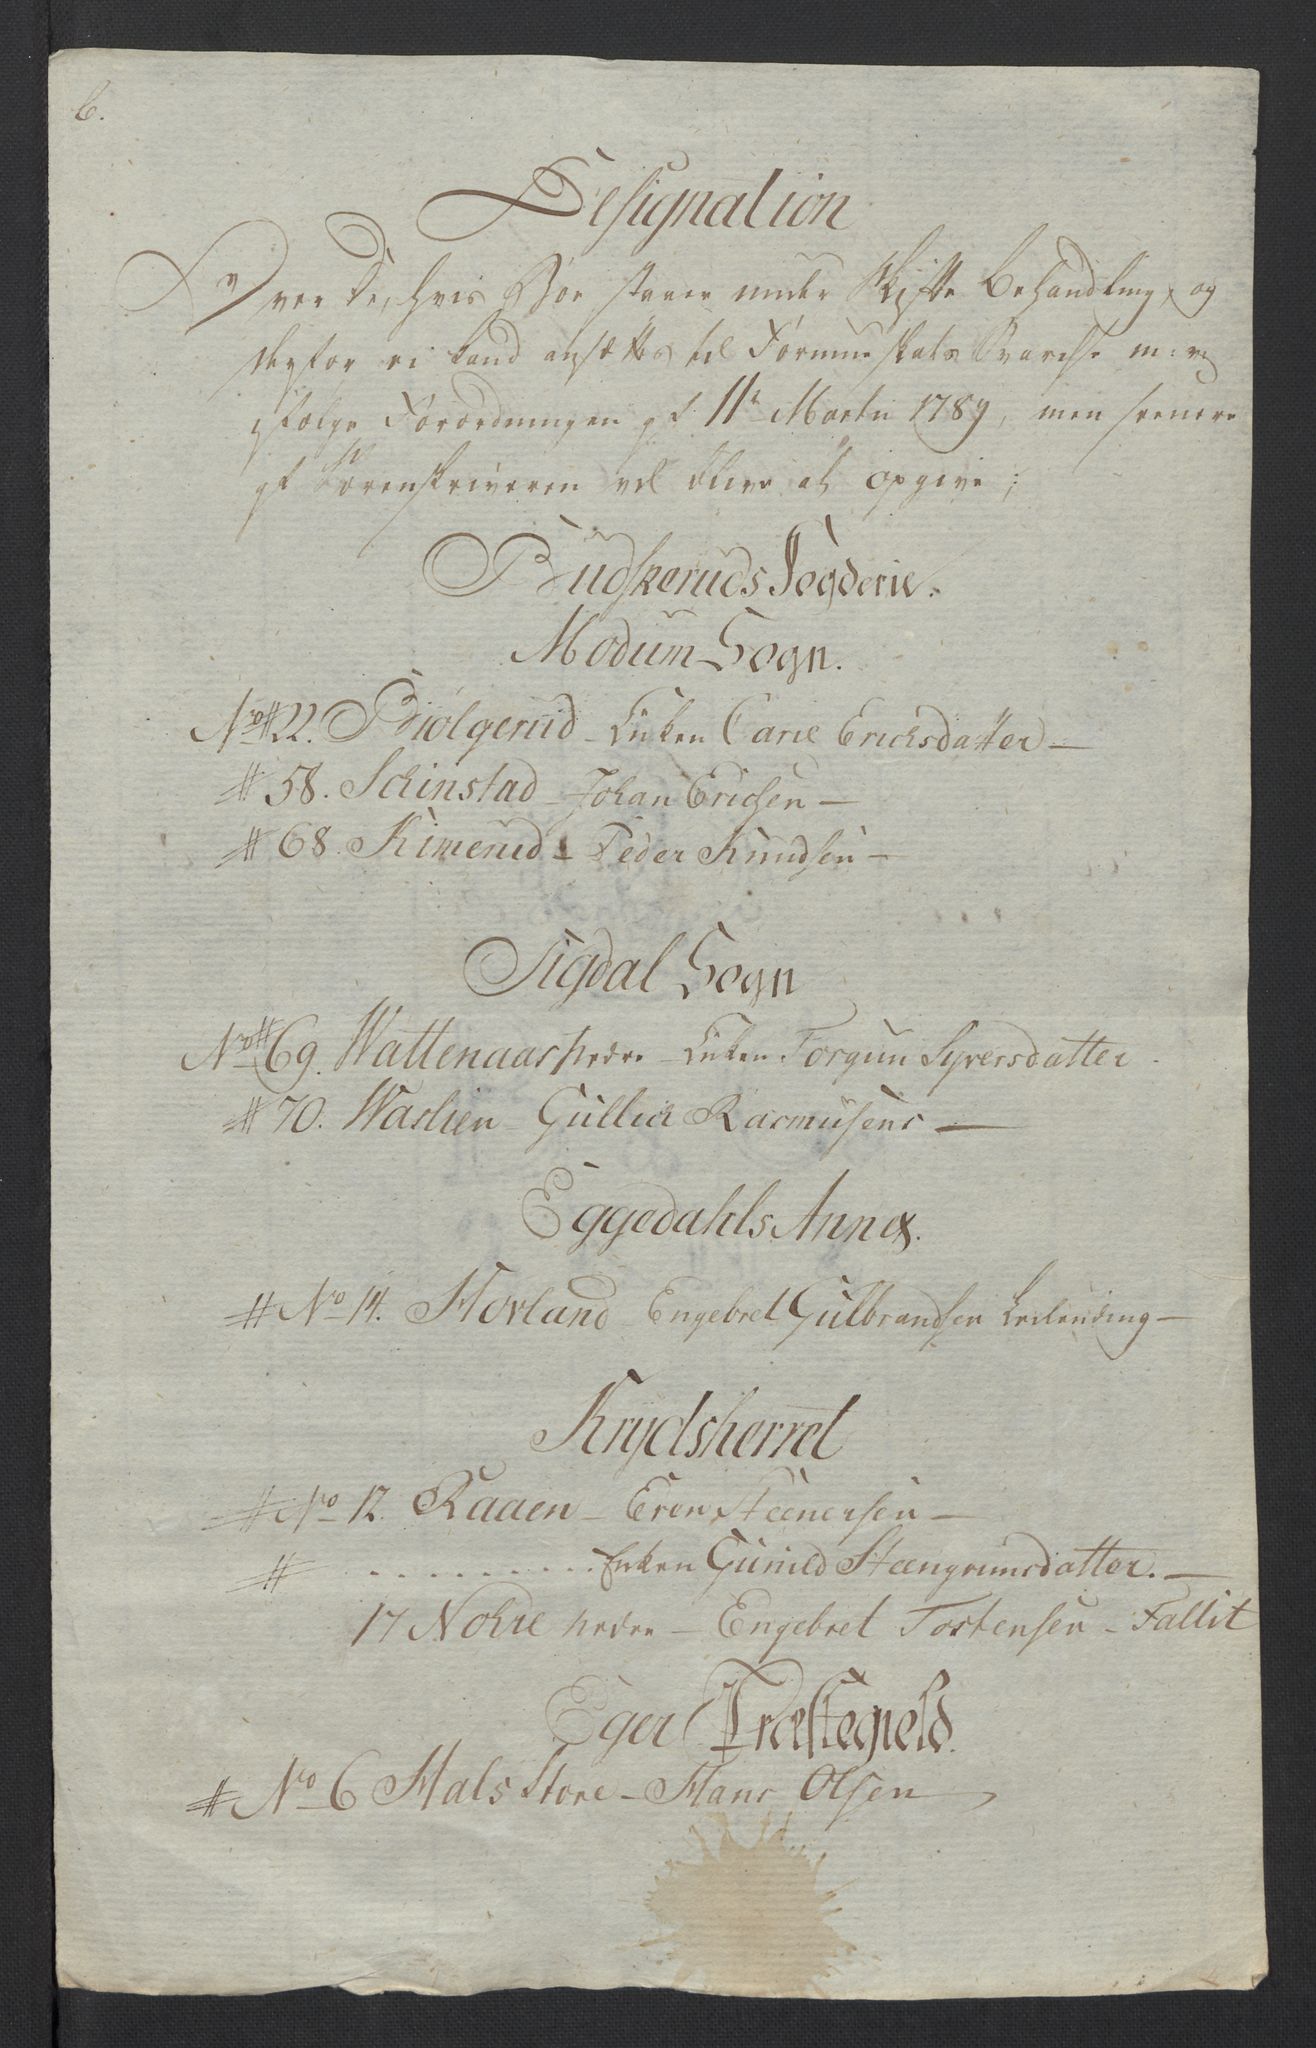 6.
Designation
Over de, hvis Boe staaer under Skifte Behandling, og
derfor ei kand ansættes til Formue skats Svarelse m: v:
ifølge Forordningen af 11te Martii 1789, men seenere
af Sorenskriveren vil blive at opgive;
Budskeruds Fogderie.
Modum Sogn.
No # 22. Biølgerud - Enken Carie Erichsdatter -
# 58. Schinstad - Johan Ericsen -
# 68. Kimerud - Peder Knudsen -
Sigdal Sogn
No # 69. Wattenaas nedre - Enken Torgun Syversdatter -
# 70. Waslien - Gullich Rasmusens -
Eggedahls Annex.
# No 14. Hovland - Engebret Gulbrandsen Leilending -
Krydsherret
# No 12. Raaen - Even Steenersen -
# .......... Enken Gunild Steengrimsdatter. -
17 Nohre nedre - Engebret Tostensen - Fallit
Eger Præstegield.
# No 6 Hals Store - Hans Olsen